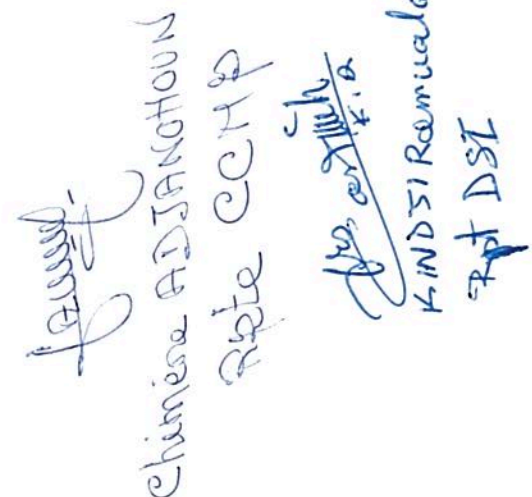 Chimène ADJANOHOUN
Rpte CCMP
K.R
KINDJI Romuald
Rpt DSI